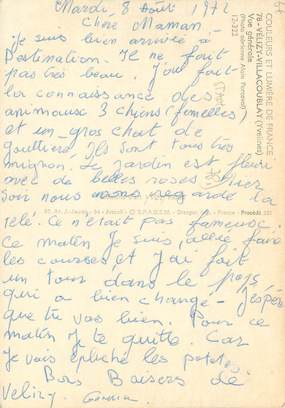 Mardi 8 Août 1972
Chère Maman.
Je suis bien arrivée à
destination. Il ne fait
pas très beau. J'ai fait
la connaissance des
animaux 3 chiens femelles
et un gros chat de
gouttière. Ils sont tous très
mignon. Le Jardin est fleuri
avec de belles roses. Hier
soir nous avons regardé la
télé. Ce n'était pas fameuse.
Ce matin Je suis allée faire
les courses et J'ai fait
un tour dans le pays
qui a bien changé. J'espère
que tu vas bien. Pour ce
matin Je te quitte. Car
Je vais épluché les patates.
Bons Baisers de
Velizy.
COULEURS ET LUMIÈRE DE FRANCE
78 - VÉLIZY-VILLACOUBLAY (Yvelines)
Vue générale
(Photo aérienne Alain Perceval)